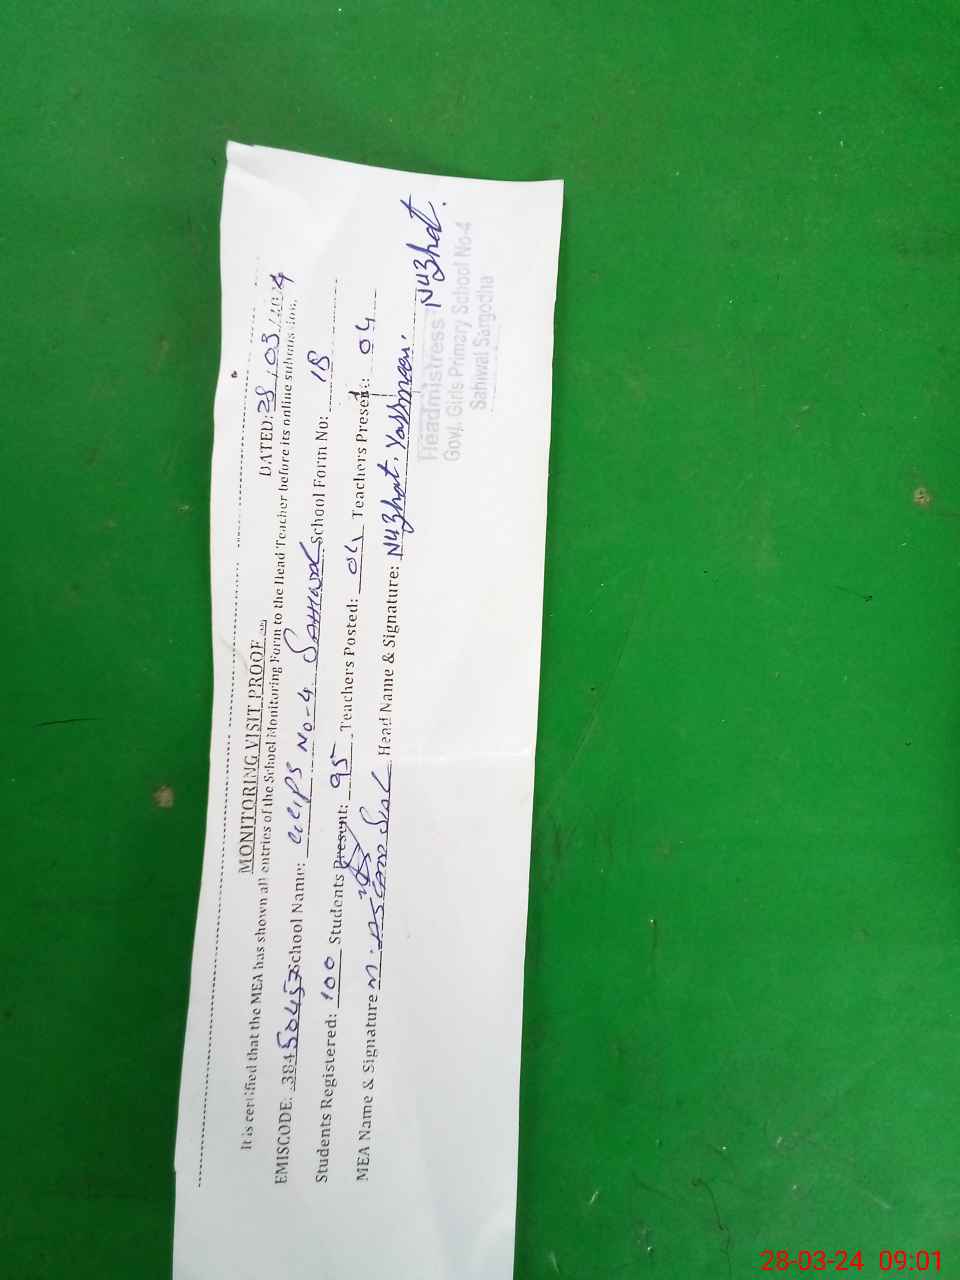 MONITORING VISIT PROOF DATED: 28/03/2024
It is certified that the MEA has shown all entries of the School Monitoring Form to the Head Teacher before its online submission.
EMISCODE: 38450457 School Name: GGPS No-4 Sahiwal School Form No: 18
Students Registered: 100 Students Present: 95 Teachers Posted: 04 Teachers Present: 04
MEA Name & Signature M. Head Name & Signature: Nuzhat. Yasmeen. Nuzhat.
Headmistress
Govt. Girls Primary School No-4
Sahiwal Sargodha
28-03-24 09:01